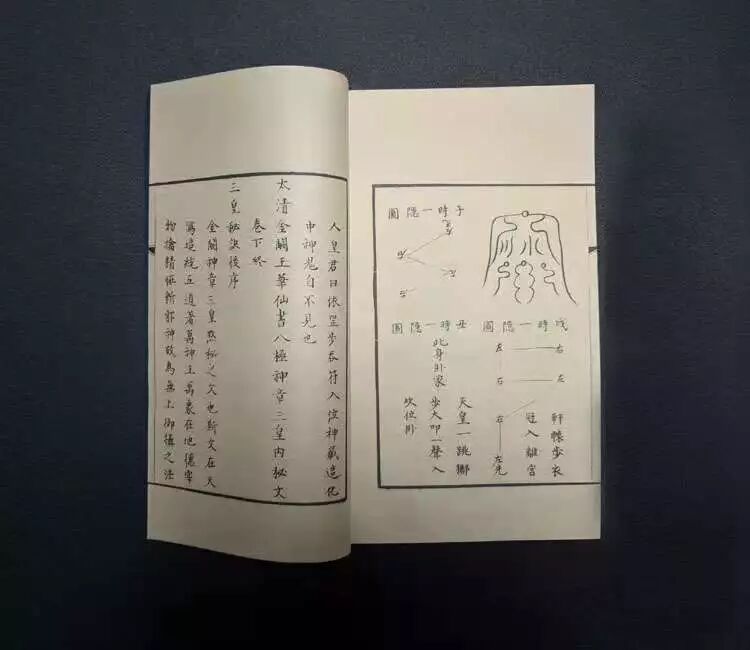 圖隱一時子
圖隱一時戌
右 左
左 右
右 左先
軒轅步衣
入離宮
圖隱一時丑
此身卦家
天皇一跳
步大叩一聲入
吹位卦
人皇君曰依罡步吞符入神藏造化
中神鬼自不見也
太清金闕玉華仙書八極神章三皇內秘文
卷下終
三皇秘決後序
金闕神章三皇秘之文也斯文在天
立道著萬神主萬象在地德宰
物擒精邪神無上御攝之法